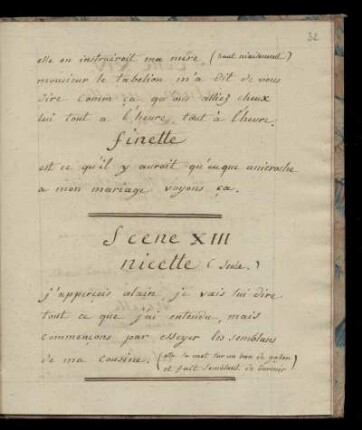 32
elle en instruiroit ma mère. (haut niaisement)
monsieur le tabelion m'a dit de vous
dire comm ça qu'ous alliez cheux
lui tout a l'heure, tout à l'heure.
finette
est ce qu'il y auroit qu'euque anicroche
a mon mariage voyons ça.
Scene XIII
nicette (seule.)
j'apperçois alain, je vais lui dire
tout ce que j'ai entendu, mais
commençons par essayer les semblans
de ma cousine. (elle se met sur un banc de gazon
et fait semblant de dormir)